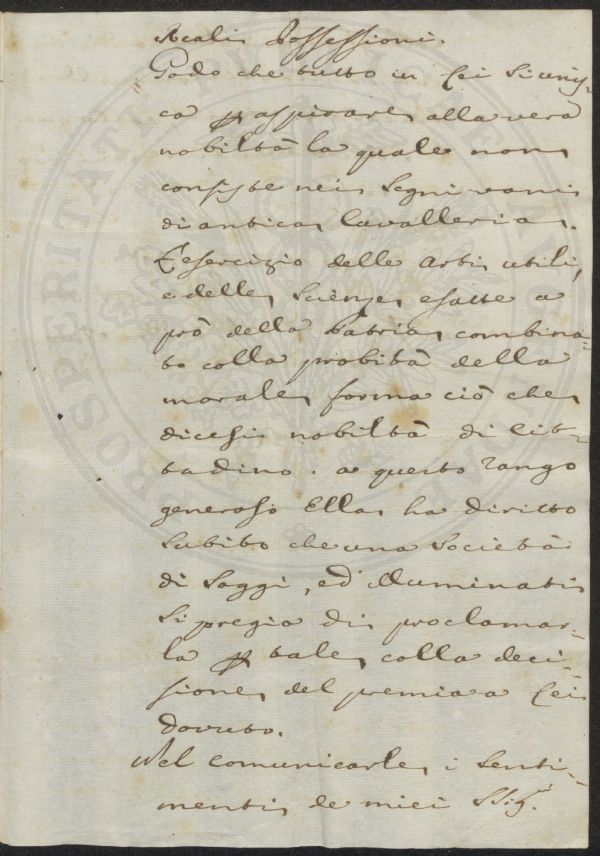 Reali Possessioni.
Godo che tutto in Lei si unis-
ca per aspirare alla vera
nobiltà la quale non
consiste nei segni vani
di antica Cavalleria.
L'esercizio delle Arti utili,
e delle Scienze esatte a
prò della Patria combina-
to colla probità della
morale forma ciò che
dicesi nobiltà di Cit-
tadino. a questo rango
generoso Ella ha diritto
subito che una Società
di Saggi, ed illuminati
si pregia di proclamar-
la per tale colla deci-
sione del premio a Lei
dovuto.
Nel comunicarle i senti-
menti de miei SSig.ri
PROSPERITATI PUBLICAE AUGENDAE